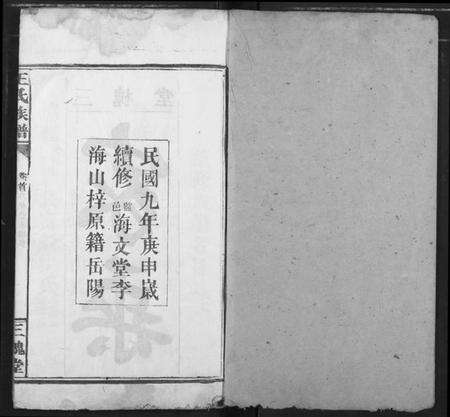 民國九年庚申歲
續修邑監海文堂李
海山梓原籍岳陽
王氏族譜
卷首
三槐堂
三槐堂